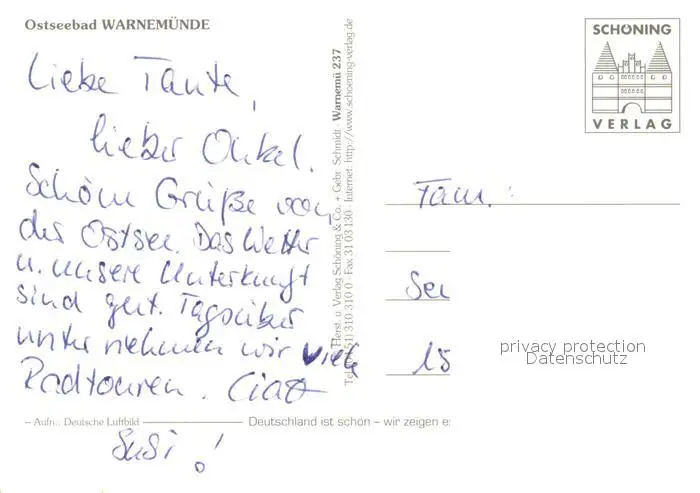 Ostseebad WARNEMÜNDE
Liebe Tante,
lieber Onkel.
Schöne Grüße von
der Ostsee. Das Wetter
u. unsere Unterkunft
sind gut. Tagsüber
unternehmen wir viele
Radtouren. Ciao
Susi!
– Aufn.: Deutsche Luftbild
Deutschland ist schön – wir zeigen es
Herst. u. Verlag Schöning & Co. + Gebr. Schmidt · Warnemü 237
310 310 0 · Fax 31 03 130 · Internet: http://www.schoening-verlag.de
SCHÖNING
VERLAG
Fam.:
privacy protection
Datenschutz